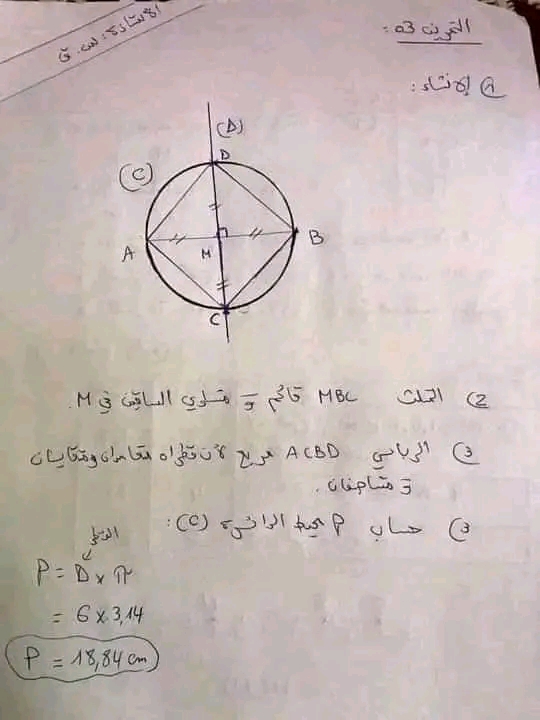 الأستاذة: س. ق
التمرين 03:
1) الإنشاء:
(Δ)
D
(C)
A
M
B
C
2) المثلث MBC قائم و متساوي الساقين في M.
3) الرباعي ACBD مربع لأن قطراه متعامدان ومتقايسان
و متناصفان.
3) حساب P محيط الدائرة (C):
القطر
P = D × π
= 6 × 3,14
P = 18,84 cm